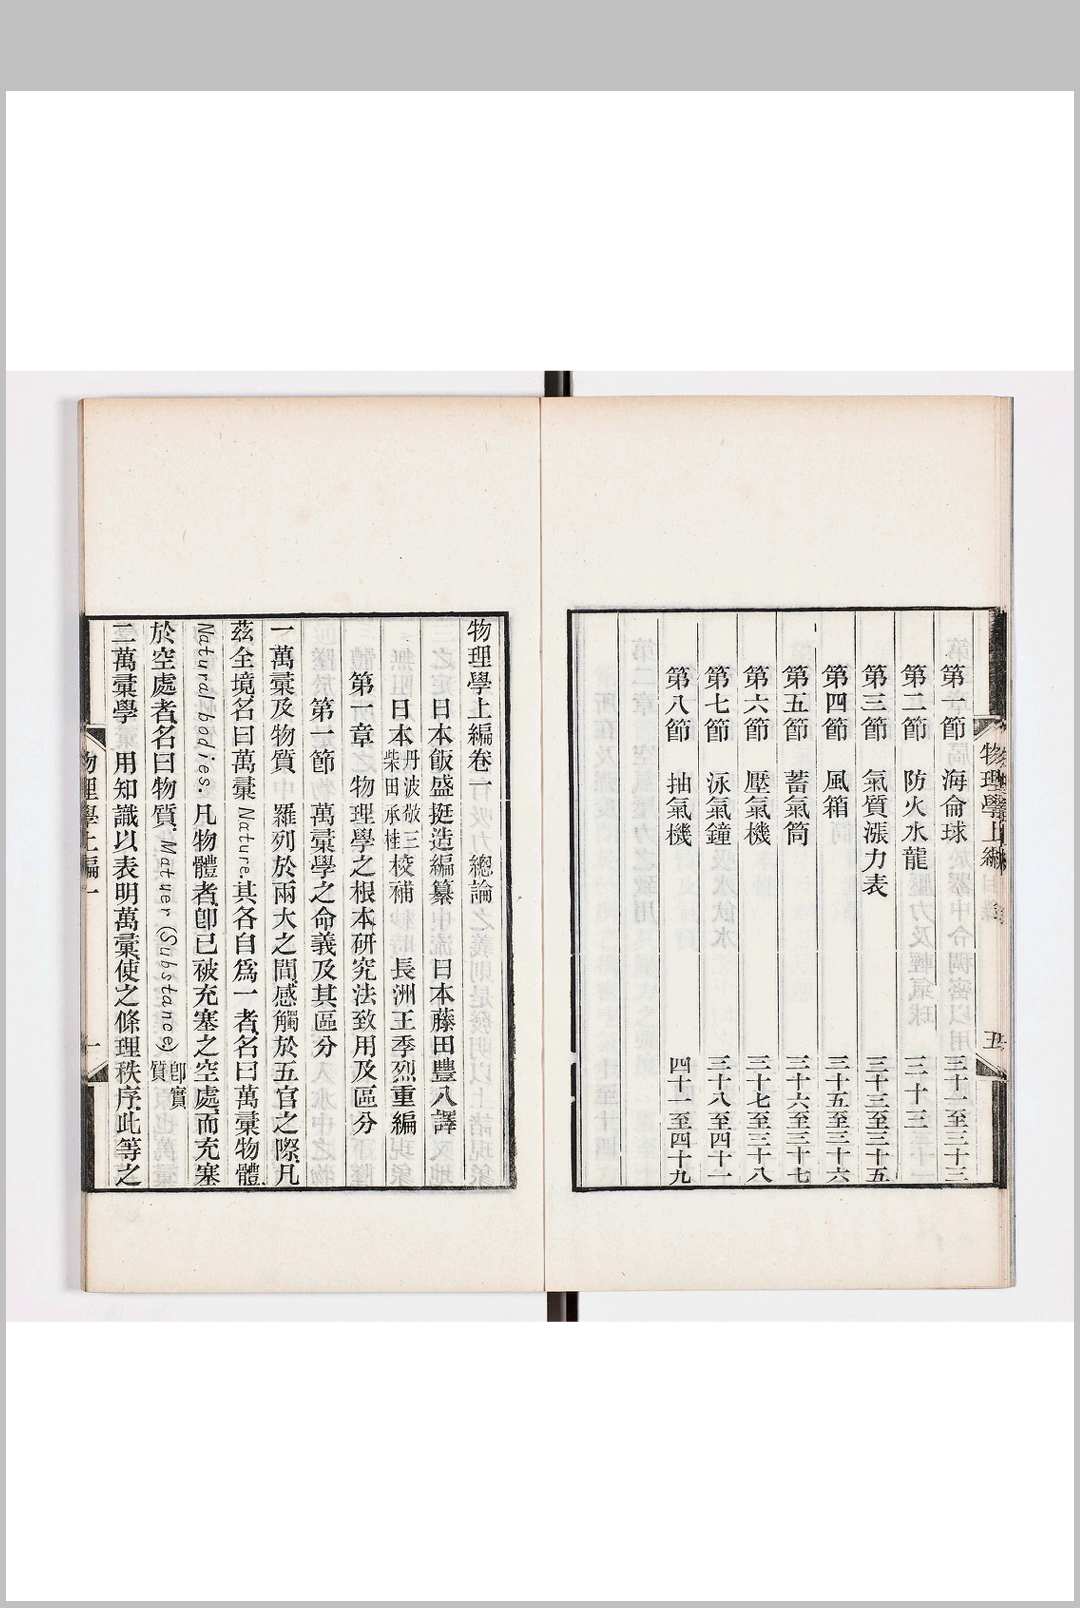 第一節　海侖球　三十一至三十三
第二節　防火水龍　三十三
第三節　氣質漲力表　三十三至三十五
第四節　風箱　三十五至三十六
第五節　蓄氣筒　三十六至三十七
第六節　壓氣機　三十七至三十八
第七節　泳氣鐘　三十八至四十一
第八節　抽氣機　四十一至四十九
物理學上編　目錄　五
物理學上編卷一　總論
日本飯盛挺造編纂　日本藤田豐八譯
日本丹波敬三柴田承桂校補　長洲王季烈重編
第一章　物理學之根本研究法致用及區分
第一節　萬彙學之命義及其區分
一萬彙及物質　羅列於兩大之間、感觸於五官之際、凡
茲全境、名曰萬彙Nature.其各自爲一者、名曰萬彙物體
Natural bodies.凡物體者、卽已被充塞之空處、而充塞
於空處者、名曰物質.Matter(Substance)卽實質
二萬彙學　用知識以表明萬彙、使之條理秩序、此等之
物理學上編一　一